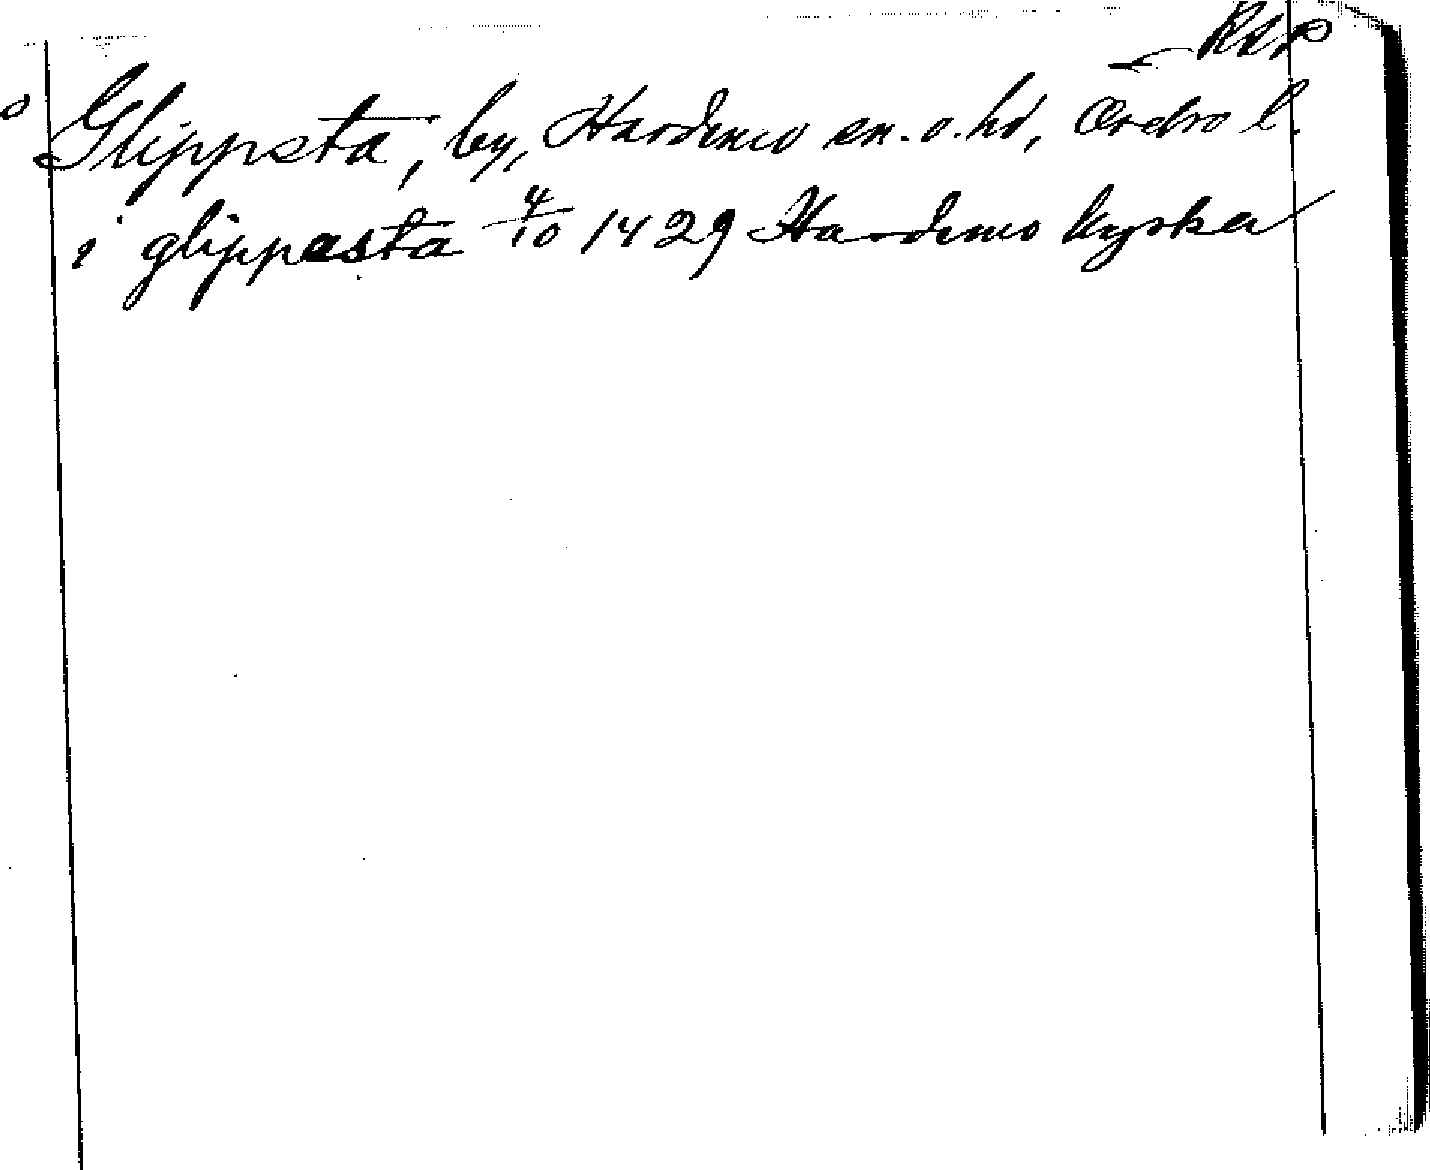 Glippsta, by, Hardemo sn. o. hd, Örebro l.
i glippasta 4/10 1429 Hardemo kyrka